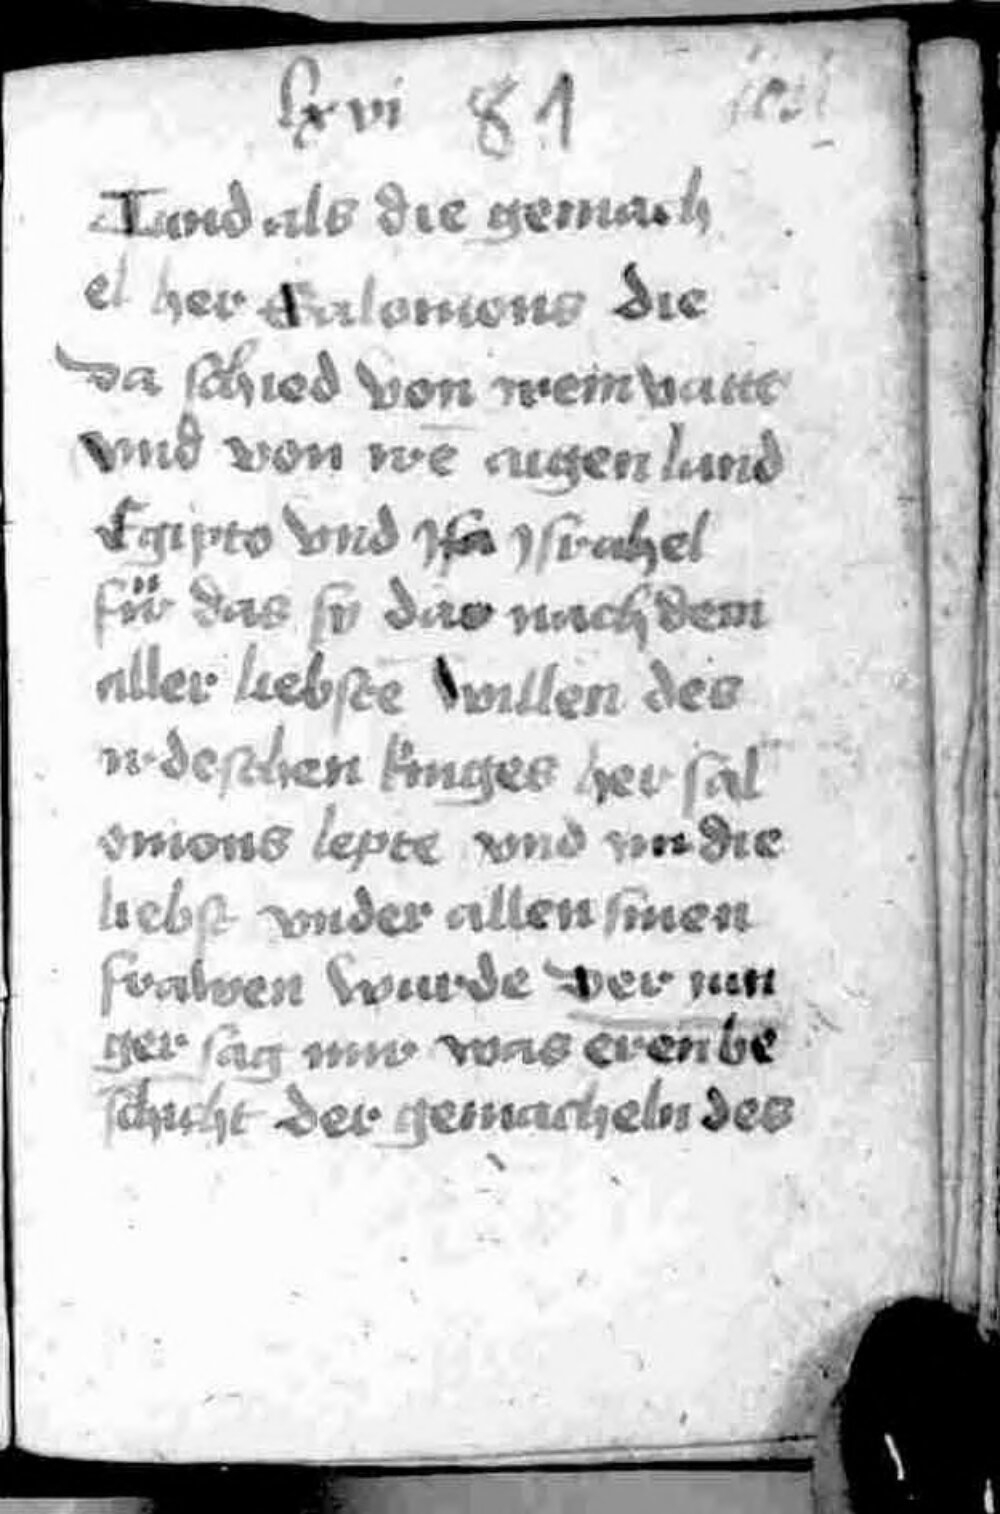 lxvi 81
Lund als die gemach
el her Salomons die
da schied von irem vatt
vnd von ire aigen land
Egipto vnd Jsrahel
für das sy das nach dem
aller liebste willen des
irdeschen kinges her sal
omons lepte vnd im die
liebst vnder allen sinen
frawen wurde Der iun
ger sag mir was eren be
schicht der gemacheln des